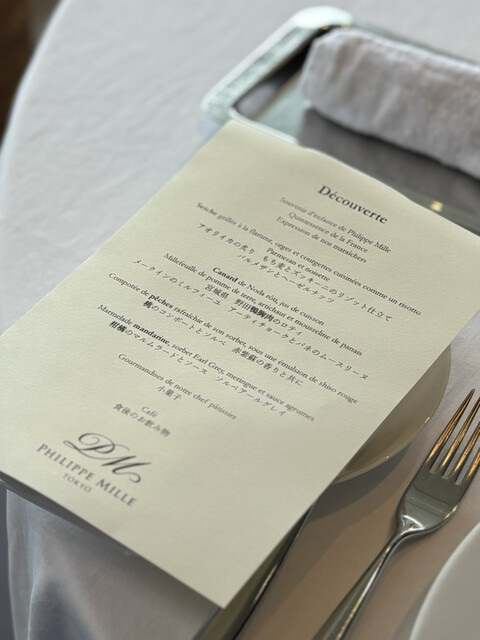 Découverte
Souvenir d'enfance de Philippe Mille
Quintessence de la France
Expression de nos maraîchers
Seiche grillée à la flamme, orges et courgettes cuisinées comme un risotto
Parmesan et noisette
アオリイカの炙り もち麦とズッキーニのリゾット仕立て
パルメザンとヘーゼルナッツ
Canard de Noda rôti, jus de cuisson
宮城県 野田鴨胸肉のロティ
Millefeuille de pomme de terre, artichaut et mousseline de panais
メークインのミルフィーユ アーティチョークとパネのムースリーヌ
Compotée de pêches rafraîchie de son sorbet, sous une émulsion de shiso rouge
桃のコンポートとソルベ 赤紫蘇の香りと共に
Marmelade mandarine, sorbet Earl Grey, meringue et sauce agrumes
柑橘のマルムラードとソース ソルベアールグレイ
Gourmandises de notre chef pâtissier
小菓子
Café
食後のお飲み物
PM
PHILIPPE MILLE
TOKYO